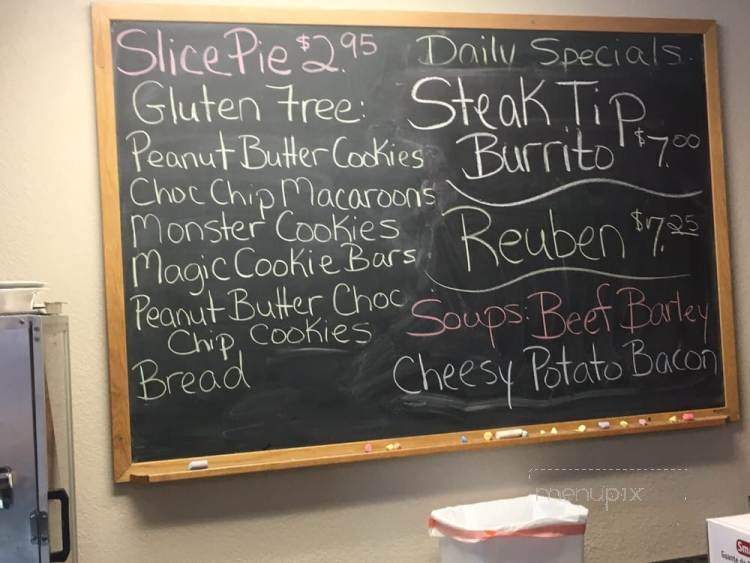 Slice Pie $2.95
Gluten Free:
Peanut Butter Cookies
Choc Chip Macaroons
Monster Cookies
Magic Cookie Bars
Peanut Butter Choc
Chip Cookies
Bread
Daily Specials
Steak Tip
Burrito $7.00
Reuben $7.25
Soups: Beef Barley
Cheesy Potato Bacon
menupix